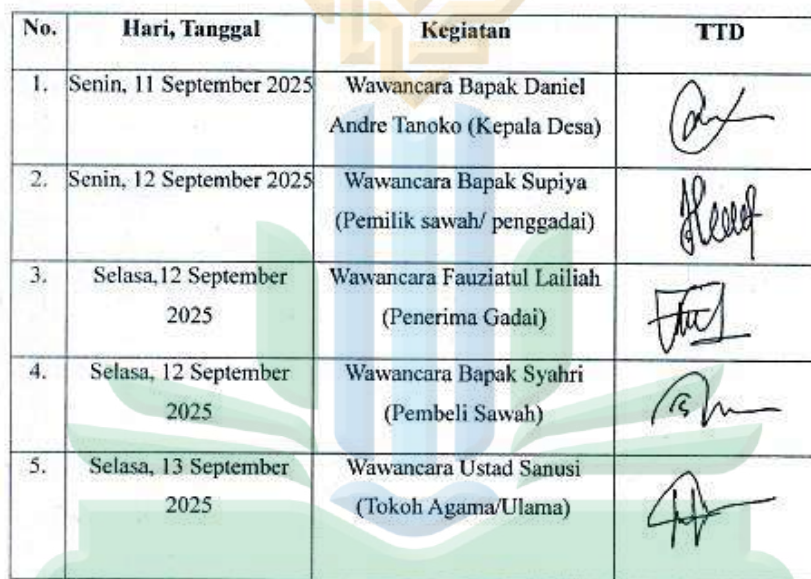 No. Hari, Tanggal Kegiatan TTD
1. Senin, 11 September 2025 Wawancara Bapak Daniel
Andre Tanoko (Kepala Desa)
2. Senin, 12 September 2025 Wawancara Bapak Supiya
(Pemilik sawah/ penggadai)
3. Selasa,12 September Wawancara Fauziatul Lailiah
2025 (Penerima Gadai)
4. Selasa, 12 September Wawancara Bapak Syahri
2025 (Pembeli Sawah)
5. Selasa, 13 September Wawancara Ustad Sanusi
2025 (Tokoh Agama/Ulama)